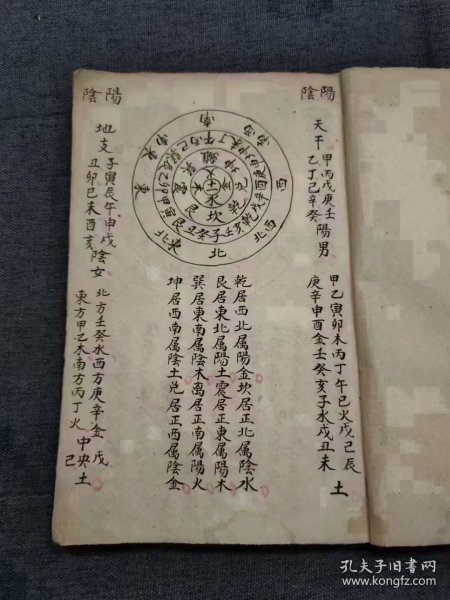 陰陽
天干
甲丙戊庚壬
乙丁己辛癸
陽男
甲乙寅卯木丙丁午巳火戊己辰
庚辛申酉金壬癸亥子水戌丑未
土
南
西南
西
西北
北
東北
東
東南
土
水
坎
乾
艮
丑癸子壬亥
乾居西北属陽金坎居正北属陰水
艮居東北属陽土震居正東属陽木
巽居東南属陰木离居正南属陽火
坤居西南属陰土兑居正西属陰金
陰陽
地支
子寅辰午申戌
丑卯巳未酉亥
陰女
北方壬癸水西方庚辛金戊
東方甲乙木南方丙丁火
中央土
己
孔夫子旧书网
www.kongfz.com